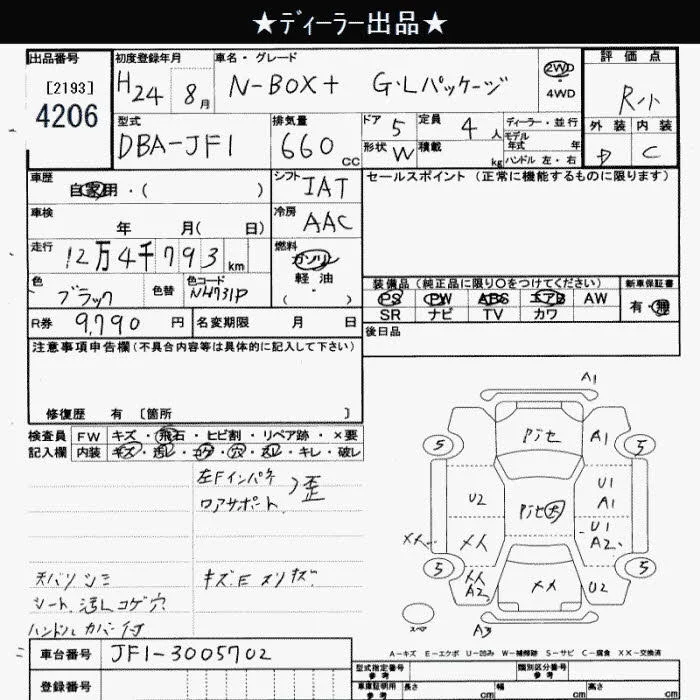 ★ディーラー出品★
出品番号
[2193]
4206
初度登録年月
H24 8月
車名・グレード
N-BOX+ G・Lパッケージ
2WD
・
4WD
評価点
R小
外装 内装
D C
型式
DBA-JF1
排気量
660 CC
ドア 5
定員 4 人
形状 W
積載 kg
ディーラー・並行
モデル
年式 年
ハンドル 左・右
車歴
自家用・( )
シフト IAT
車検
年 月( 日)
冷房 AAC
走行
12万4千793 km
燃料
ガソリン
軽油
・
( )
色 ブラック
色替
色コード
NH731P
R券 9,790 円
名変期限 月 日
セールスポイント (正常に機能するものに限ります)
装備品 (純正品に限り○をつけてください)
PS PW ABS エアB AW
SR ナビ TV カワ
新車保証書
有・無
後日品
注意事項申告欄(不具合内容等は具体的に記入して下さい)
修復歴 有 〔箇所 〕
検査員
記入欄
FW キズ・飛石・ヒビ割・リペア跡・×要
内装 キズ・汚レ・コゲ・穴・スレ・キレ・破レ
左Fインパネ
ロアサポート 〉歪
天バリ シミ
シート 汚レ コゲ 穴
ハンドル カバー付
キズ.E スリキズ.
A1
5
Pᅵセ
A1
5
U2
U1
A1
Pᅵセ大
U1
A2
××
×人
5
××
A2
××
U2
5
スペア
A3
A-キズ E-エクボ U-凹み W-補修跡 S-サビ C-腐食 XX-交換済
車台番号 JF1-3005702
登録番号
型式指定番号
参考
類別区分番号
参考
車庫証明用
参考
長さ cm
幅 cm
高さ cm